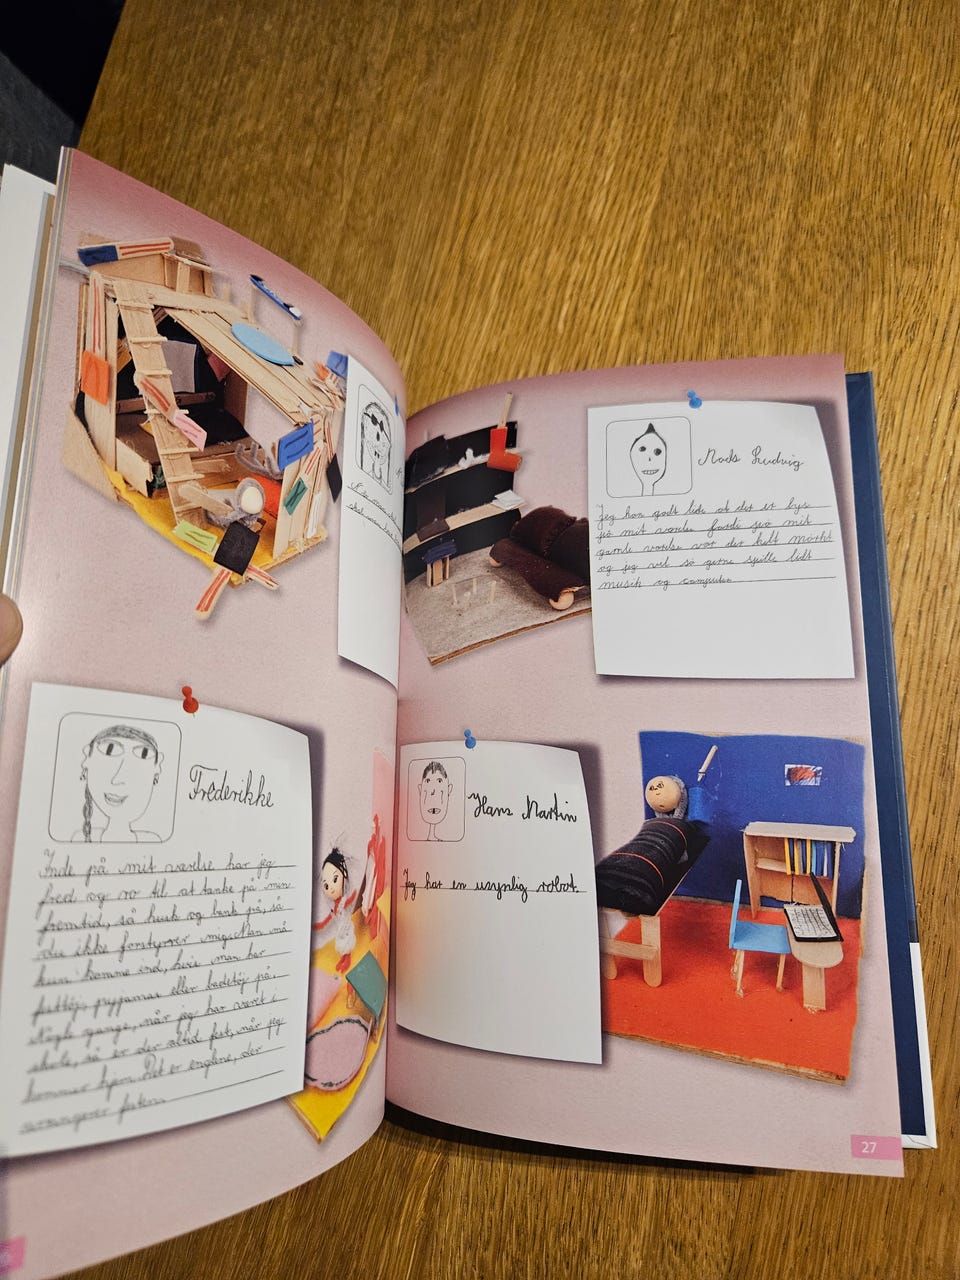 Frederikke
Inde på mit værelse har jeg
fred og ro til at tænke på min
fremtid, så husk og bank på, så
du ikke forstyrrer mig. Man må
kun komme ind, hvis man har
festtøj, pyjamas eller badetøj på.
Nogle gange, når jeg har været i
skole, så er der altid fest, når jeg
kommer hjem. Det er englene, der
arrangerer festen.
Mads Ludvig
Jeg kan godt lide at det er lyst
på mit værelse fordi på mit
gamle værelse var det helt mørkt
og jeg vil så gerne spille lidt
musik og computer
Hans Martin
Jeg har en usynlig robot.
27